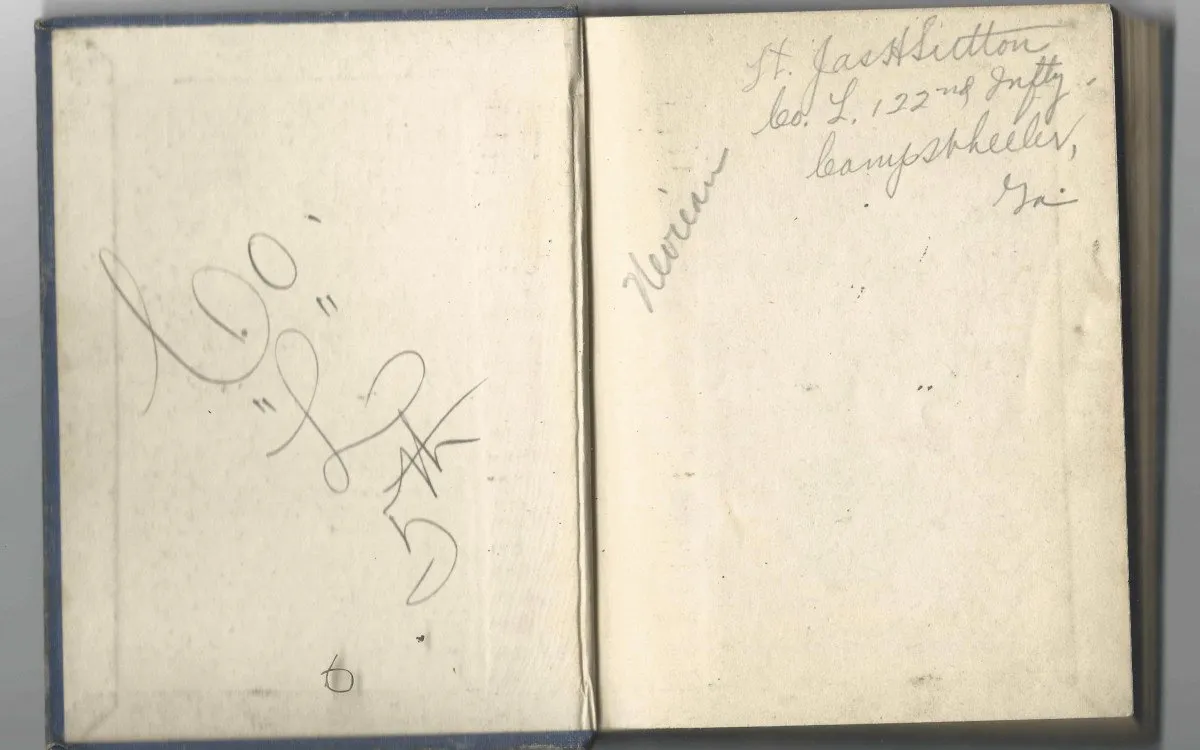 Co.
"L"
5th
6
Lt. Jas H Sutton
Co. L. 122nd Inftry.
Camp Wheeler,
Ga.